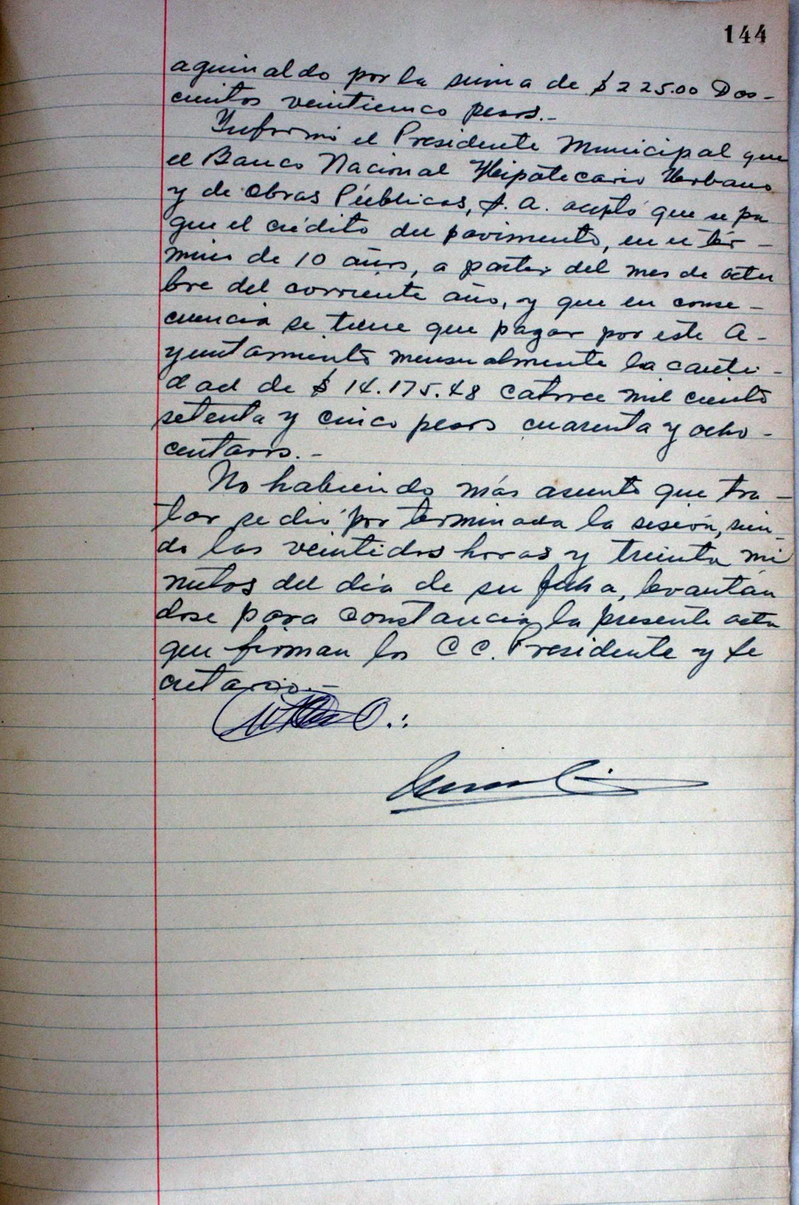 144
aguinaldo por la suma de $225.00 Dos-
cientos veinticinco pesos.-
Informó el Presidente Municipal que
el Banco Nacional Hipotecario Urbano
y de Obras Públicas, S. A. aceptó que se pa
gue el crédito del pavimento, en el tér-
mino de 10 años, a partir del mes de octu
bre del corriente año, y que en conse-
cuencia se tiene que pagar por este A-
yuntamiento mensualmente la canti-
dad de $14.175.48 catorce mil ciento
setenta y cinco pesos cuarenta y ocho-
centavos.-
No habiendo más asunto que tra-
tar se dió por terminada la sesión, sien-
do las veintidos horas y treinta mi
nutos del día de su fecha, levantán
dose para constancia la presente acta
que firman los C C. Presidente y Se
cretario.-